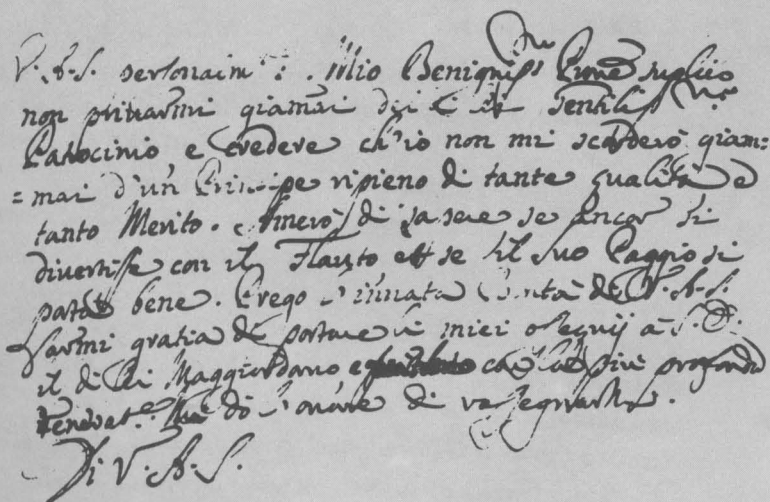 V. A. S. Mio Benignis.mo suplico
non privarmi giamai del di
Patrocinio, e credere ch'io non mi scorderò giam:
=mai d'un Principe ripieno di tante qualità e
tanto Merito. di sapere se ancor si
divertisse con il Flauto et se il suo Paggio si
porta bene. Prego l'innata Bontà di V. A. S.
farmi gratia di portare li miei ossequij à S. E.
il di lei Maggiordomo e che la più profonda
Venerat.e hà di
Di V. A. S.